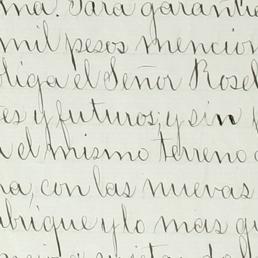 ma. Para garantiz
mil pesos mencion
bliga el Señor Rosel
es y futuros; y sin
el mismo terreno
na, con las nuevas
abrique y lo mas qu